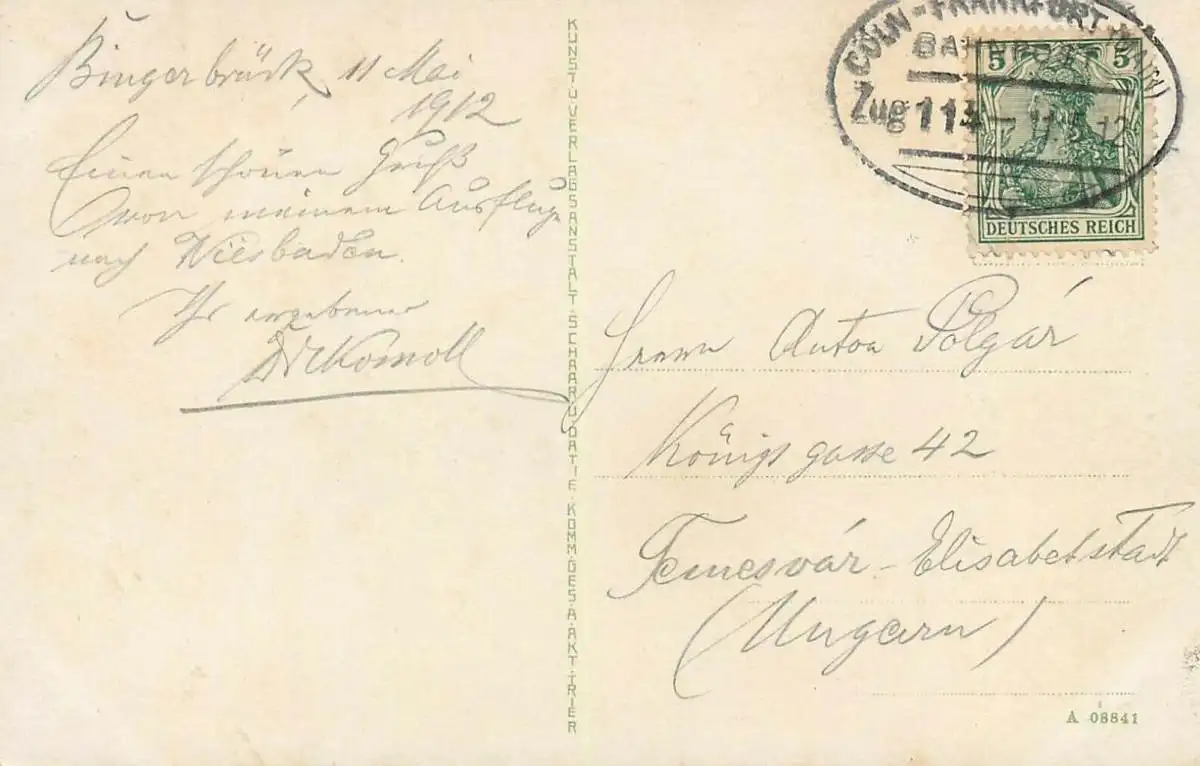 Bingerbrück, 11 Mai
1912
Einen schönen Gruß
von meinem Ausfluge
nach Wiesbaden.
Ihr ergebener
KUNST U VERLAGSANSTALT · SCHAAR U DATHE · KOMM · GES · A · AKT · TRIER
CÖLN - FRANKFURT (MAIN)
BAHNPOST
Zug 113 - 11.5.12
5 5
DEUTSCHES REICH
Herrn Anton Polgár
Königsgasse 42
Temesvár - Elisabetstadt
(Ungarn)
A 08841